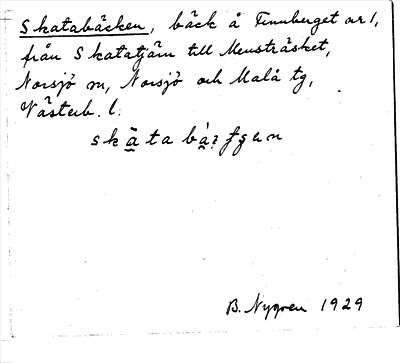 Skatabäcken, bäck å Finnberget nr 1,
från Skatatjärn till Mensträsket,
Norsjö sn, Norsjö och Malå tg,
Västerb. l.
B. Nygren 1929